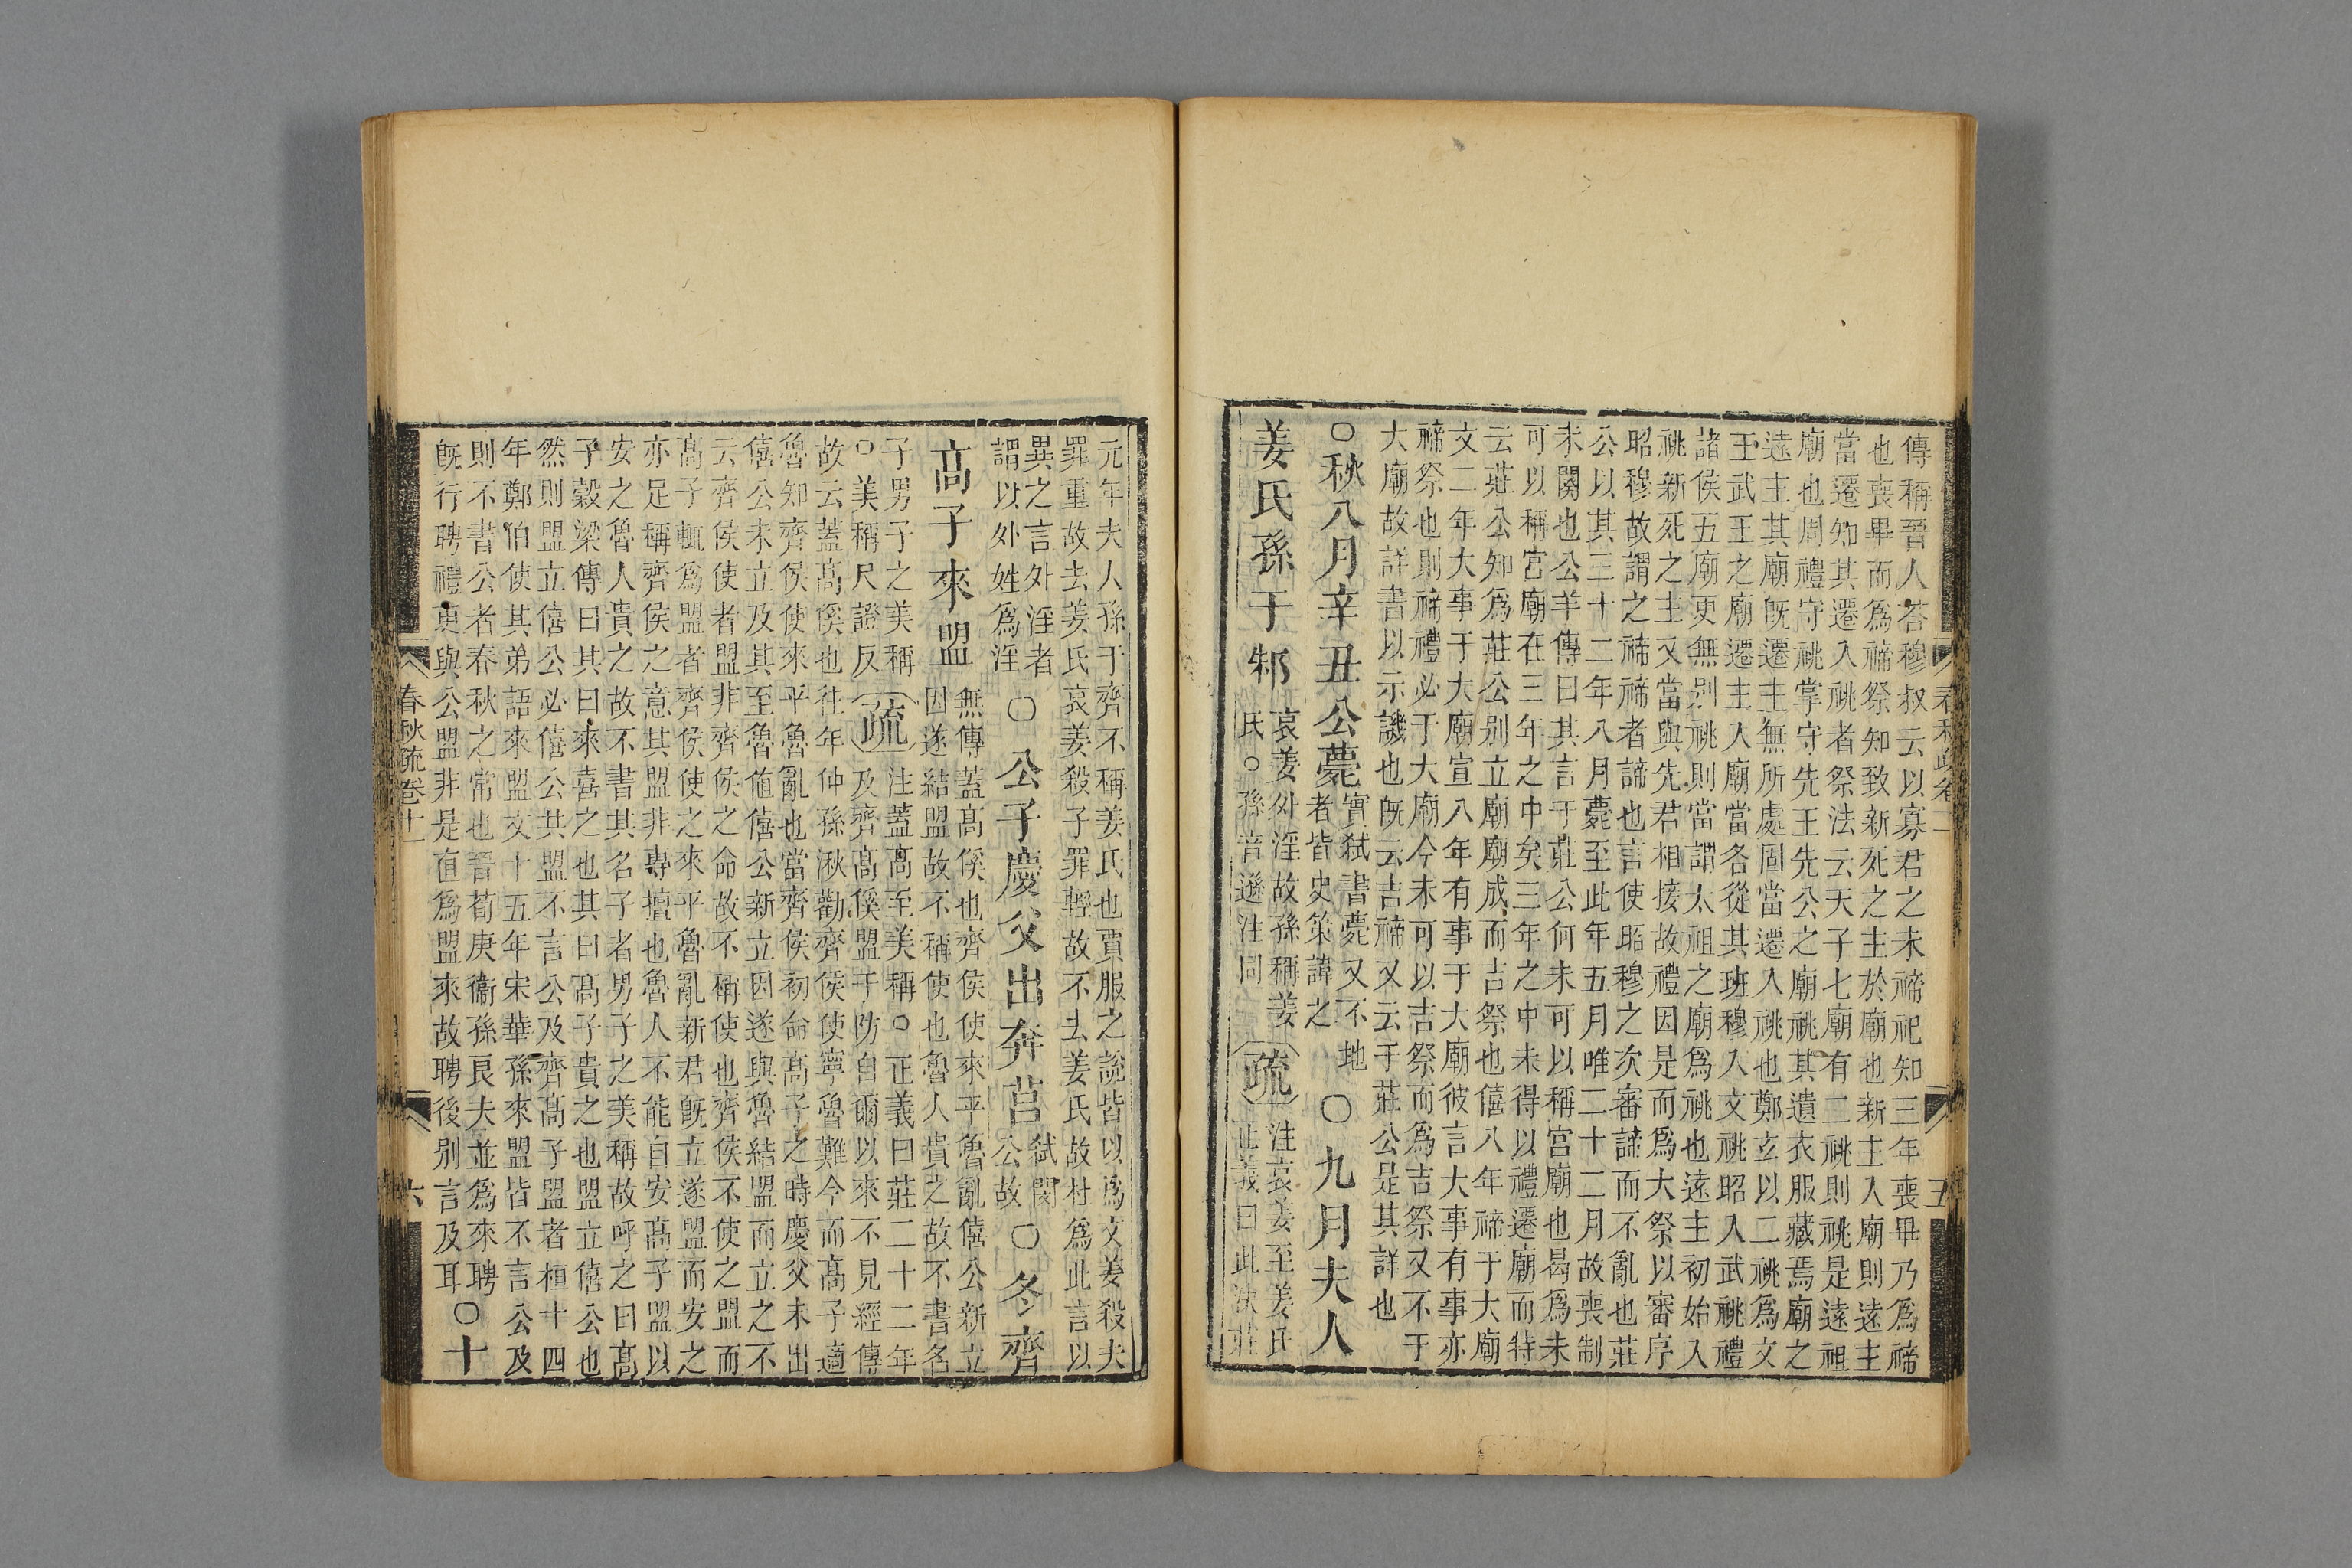 春秋疏卷十一 五
傳稱晉人荅穆叔云以寡君之未禘祀知三年喪畢乃爲禘
也喪畢而爲禘祭知致新死之主於廟也新主入廟則遠主
當遷知其遷入祧者祭法云天子七廟有二祧則祧是遠祖
廟也周禮守祧掌守先王先公之廟祧其遺衣服藏焉廟之
遠主其廟旣遷主無所處固當遷入祧也鄭玄以二祧爲文
王武王之廟遷主入廟當各從其班穆入文祧昭入武祧禮
諸侯五廟更無別祧則當謂太祖之廟爲祧也遠主初始入
祧新死之主又當與先君相接故禮因是而爲大祭以審序
昭穆故謂之禘禘者諦也言使昭穆之次審諦而不亂也莊
公以其三十二年八月薨至此年五月唯二十二月故喪制
未闋也公羊傳曰其言于莊公何未可以稱宮廟也曷爲未
可以稱宮廟在三年之中矣三年之中未得以禮遷廟而特
云莊公知爲莊公別立廟廟成而吉祭也僖八年禘于大廟
文二年大事于大廟宣八年有事于大廟彼言大事有事亦
禘祭也則禘禮必于大廟今未可以吉祭而爲吉祭又不于
大廟故詳書以示譏也旣云吉禘又云于莊公是其詳也
○秋八月辛丑公薨實弒書薨又不地者皆史策諱之○九月夫人
姜氏孫于邾哀姜外淫故孫稱姜氏○孫音遜注同疏注哀姜至姜氏正義曰此決莊
元年夫人孫于齊不稱姜氏也賈服之說皆以爲文姜殺夫
罪重故去姜氏哀姜殺子罪輕故不去姜氏故杜爲此言以
異之言外淫者謂以外姓爲淫○公子慶父出奔莒弒閔公故○冬齊
高子來盟無傳蓋高傒也齊侯使來平魯亂僖公新立因遂結盟故不稱使也魯人貴之故不書名
子男子之美稱○美稱尺證反疏注蓋高至美稱○正義曰莊二十二年及齊高傒盟于防自爾以來不見經傳
故云蓋高傒也往年仲孫湫勸齊侯使寧魯難今而高子適
魯知齊侯使來平魯亂也當齊侯初命高子之時慶父未出
僖公未立及其至魯値僖公新立因遂與魯結盟而立之不
云齊侯使者盟非齊侯之命故不稱使也齊侯不使之盟而
高子輒爲盟者齊侯使之來平魯亂新君旣立遂盟而安之
亦足稱齊侯之意其盟非專擅也魯人不能自安高子盟以
安之魯人貴之故不書其名子者男子之美稱故呼之曰高
子穀梁傳曰其曰來喜之也其曰高子貴之也盟立僖公也
然則盟立僖公必僖公共盟不言公及齊高子盟者桓十四
年鄭伯使其弟語來盟文十五年宋華孫來盟皆不言公及
則不書公者春秋之常也晉荀庚衞孫良夫並爲來聘
旣行聘禮更與公盟非是直爲盟來故聘後別言及耳○十
春秋疏卷十一 六